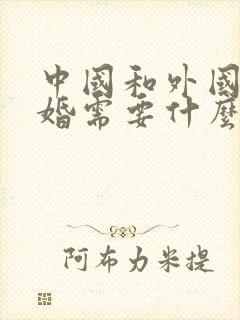 中國和外國
婚需要什麼
阿布力米提